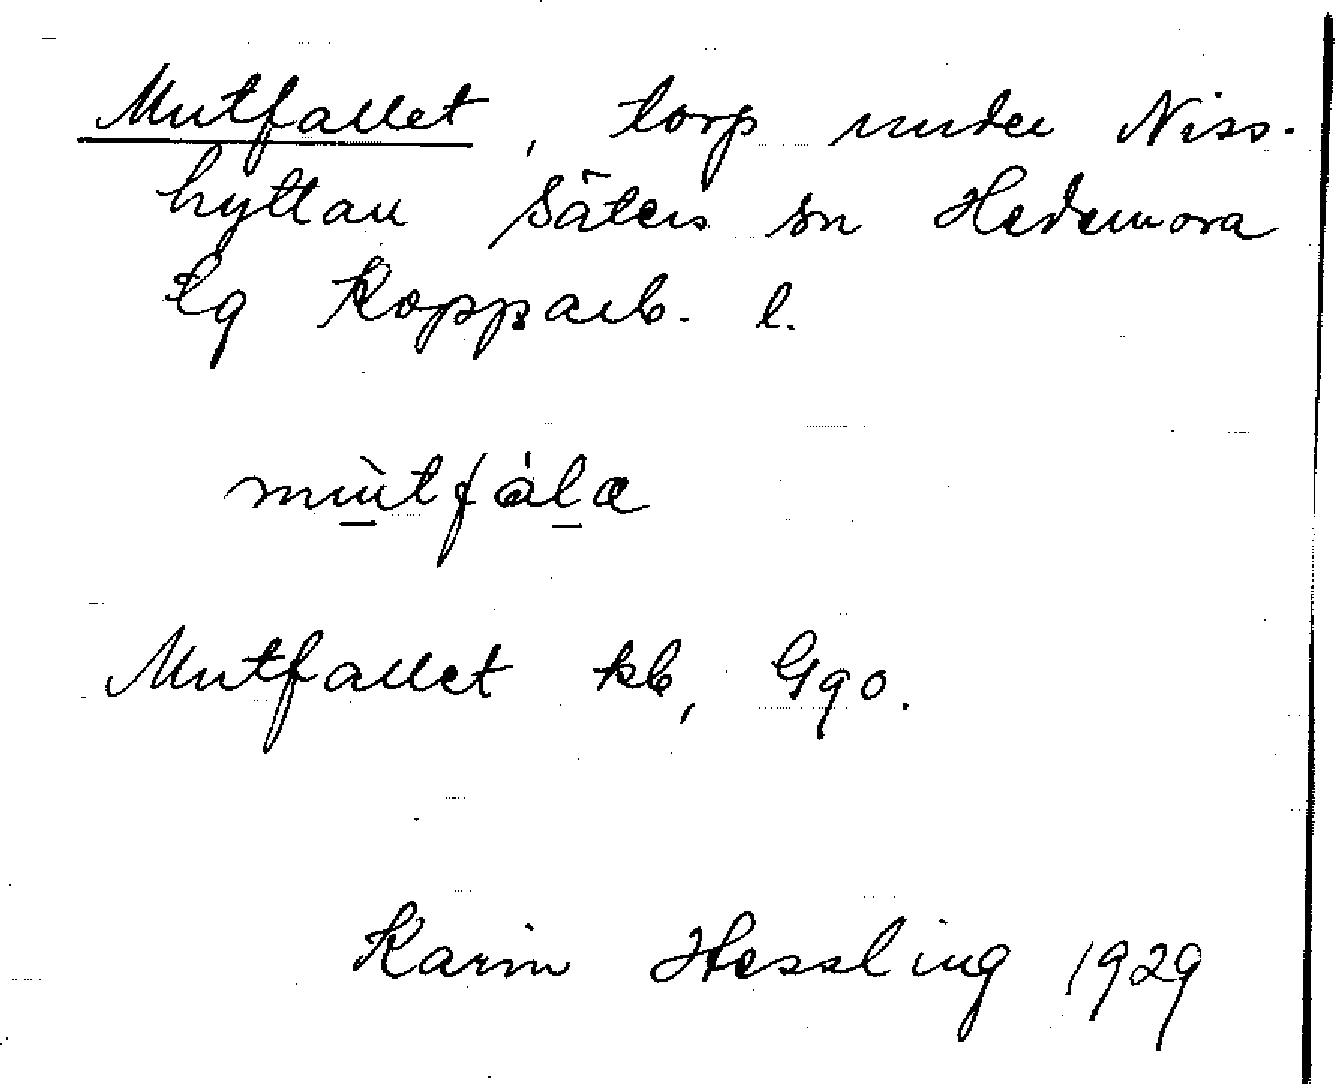 Mutfallet, torp under Niss-
hyttan Säters sn Hedemora
tg Kopparb. l.
mùtfála
Mutfallet kb, Ggo.
Karin Hessling 1929